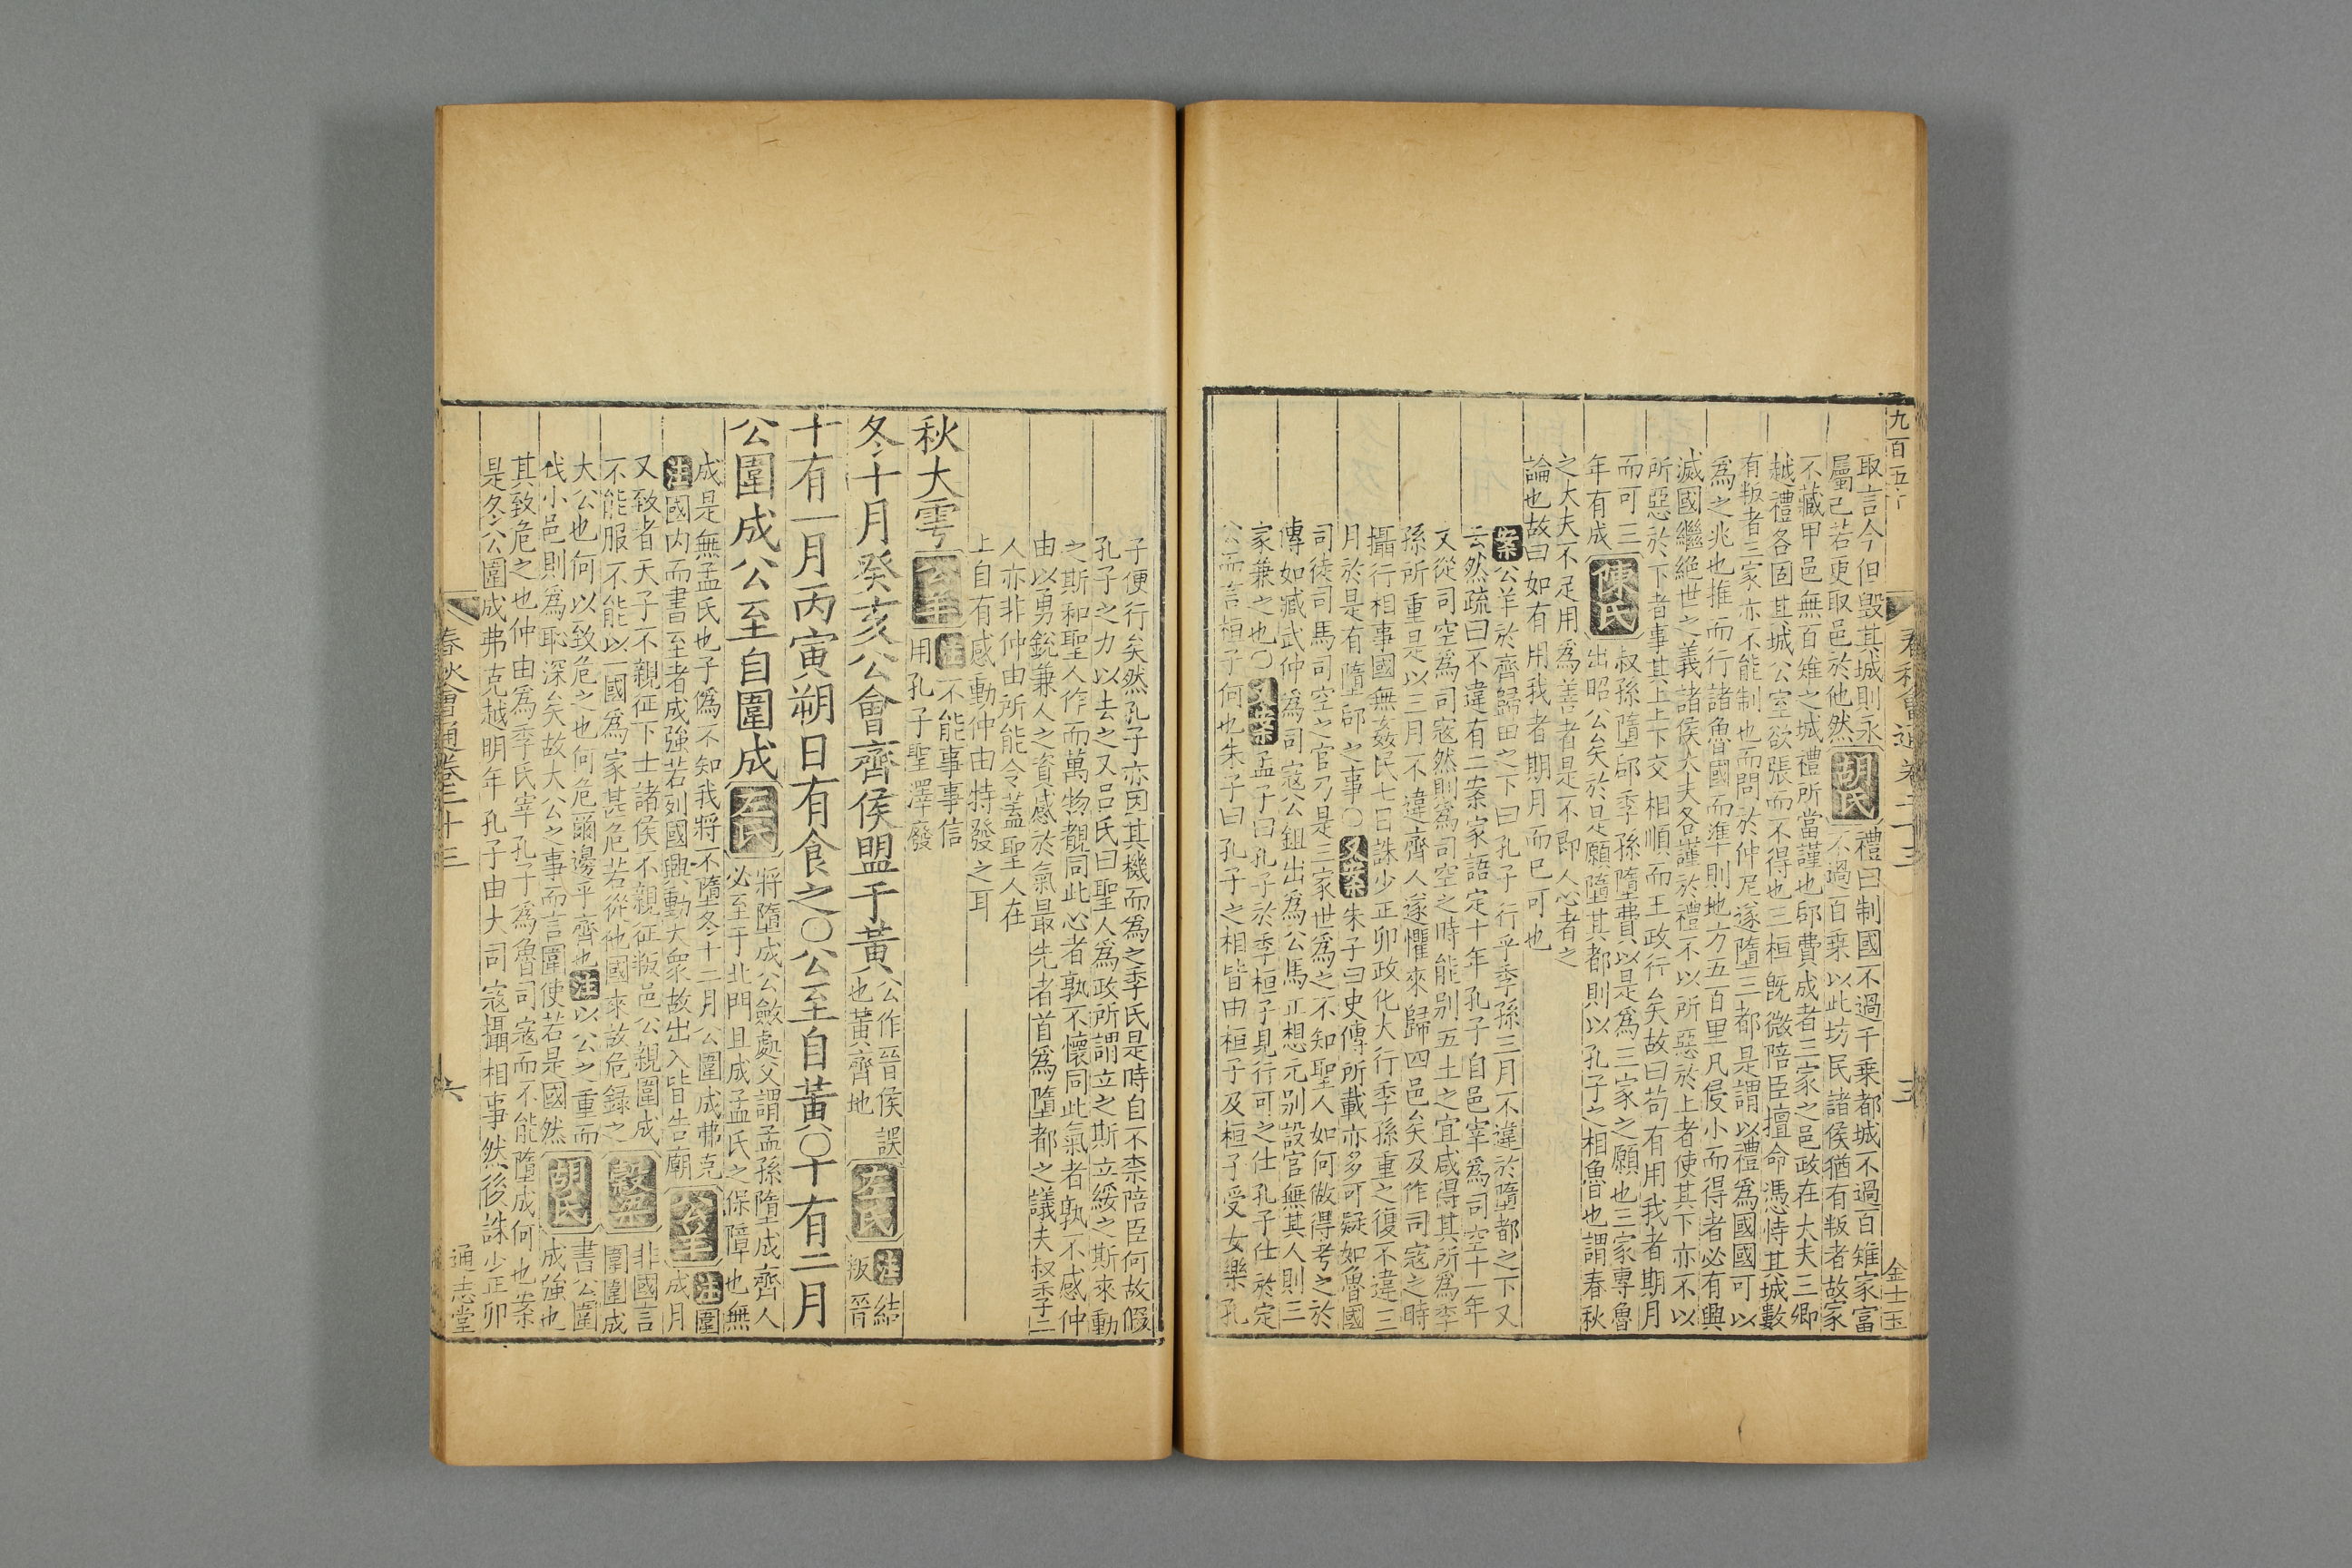 九百五十
春秋會通卷二十三
三
金士玉
取言今但毀其城則永
屬己若更取邑於他然
胡氏
禮曰制國不過千乗都城不過百雉家富
不過百乗以此坊民諸侯猶有叛者故家
不藏甲邑無百雉之城禮所當謹也郈費成者三家之邑政在大夫三卿
越禮各固其城公室欲張而不得也三桓既微陪臣擅命憑恃其城數
有叛者三家亦不能制也而問於仲尼遂墮三都是謂以禮爲國可以
爲之兆也推而行諸魯國而準則地方五百里凡侵小而得者必有興
滅國繼絶世之義諸侯大夫各謹於禮不以所惡於上者使其下亦不以
所惡於下者事其上上下交相順而王政行矣故曰苟有用我者期月
而可三
年有成
陳氏
叔孫墮郈季孫墮費以是爲三家之願也三家專魯
出昭公矣於是願墮其都則以孔子之相魯也謂春秋
之大夫不足用爲善者是不即人心者之
論也故曰如有用我者期月而已可也
案公羊於齊歸田之下曰孔子行乎季孫三月不違於墮都之下又
云然疏曰不違有二案家語定十年孔子自邑宰爲司空十一年
又從司空爲司寇然則爲司空之時能别五土之宜咸得其所爲季
孫所重是以三月不違齊人遂懼來歸四邑矣及作司寇之時
攝行相事國無姦民七日誅少正卯政化大行季孫重之復不違三
月於是有墮郈之事〇又案朱子曰史傳所載亦多可疑如魯國
司徒司馬司空之官乃是三家世爲之不知聖人如何做得考之於
傳如臧武仲爲司寇公鉏出爲公馬正想元别設官無其人則三
家兼之也〇又案孟子曰孔子於季桓子見行可之仕孔子仕於定
公而言桓子何也朱子曰孔子之相皆由桓子及桓子受女樂孔
子便行矣然孔子亦因其機而爲之季氏是時自不柰陪臣何故假
孔子之力以去之又吕氏曰聖人爲政所謂立之斯立綏之斯來動
之斯和聖人作而萬物覩同此心者孰不懷同此氣者孰不感仲
由以勇銳兼人之資感於氣最先者首爲墮都之議夫叔季二
人亦非仲由所能令蓋聖人在
上自有感動仲由特發之耳
秋大雩
公羊
注不能事事信
用孔子聖澤廢
冬十月癸亥公會齊侯盟于黄
公作晉侯誤
也黃齊地
左氏
注結
叛晉
十有一月丙寅朔日有食之〇公至自黃〇十有二月
公圍成公至自圍成
左氏
將墮成公斂處父謂孟孫墮成齊人
必至于北門且成孟氏之保障也無
成是無孟氏也子僞不知我將不墮冬十二月公圍成弗克
注國内而書至者成強若列國興動大衆故出入皆告廟
公羊
注圍
成月
又致者天子不親征下士諸侯不親征叛邑公親圍成
不能服不能以一國爲家甚危若從他國來故危錄之
穀梁
非國言
圍圍成
大公也何以致危之也何危爾邊乎齊也注以公之重而
伐小邑則爲恥深矣故大公之事而言圍使若是國然
胡氏
書公圍
成強也
其致危之也仲由爲季氏宰孔子爲魯司寇而不能墮成何也案
是冬公圍成弗克越明年孔子由大司寇攝相事然後誅少正卯
春秋會通卷二十三
六
通志堂